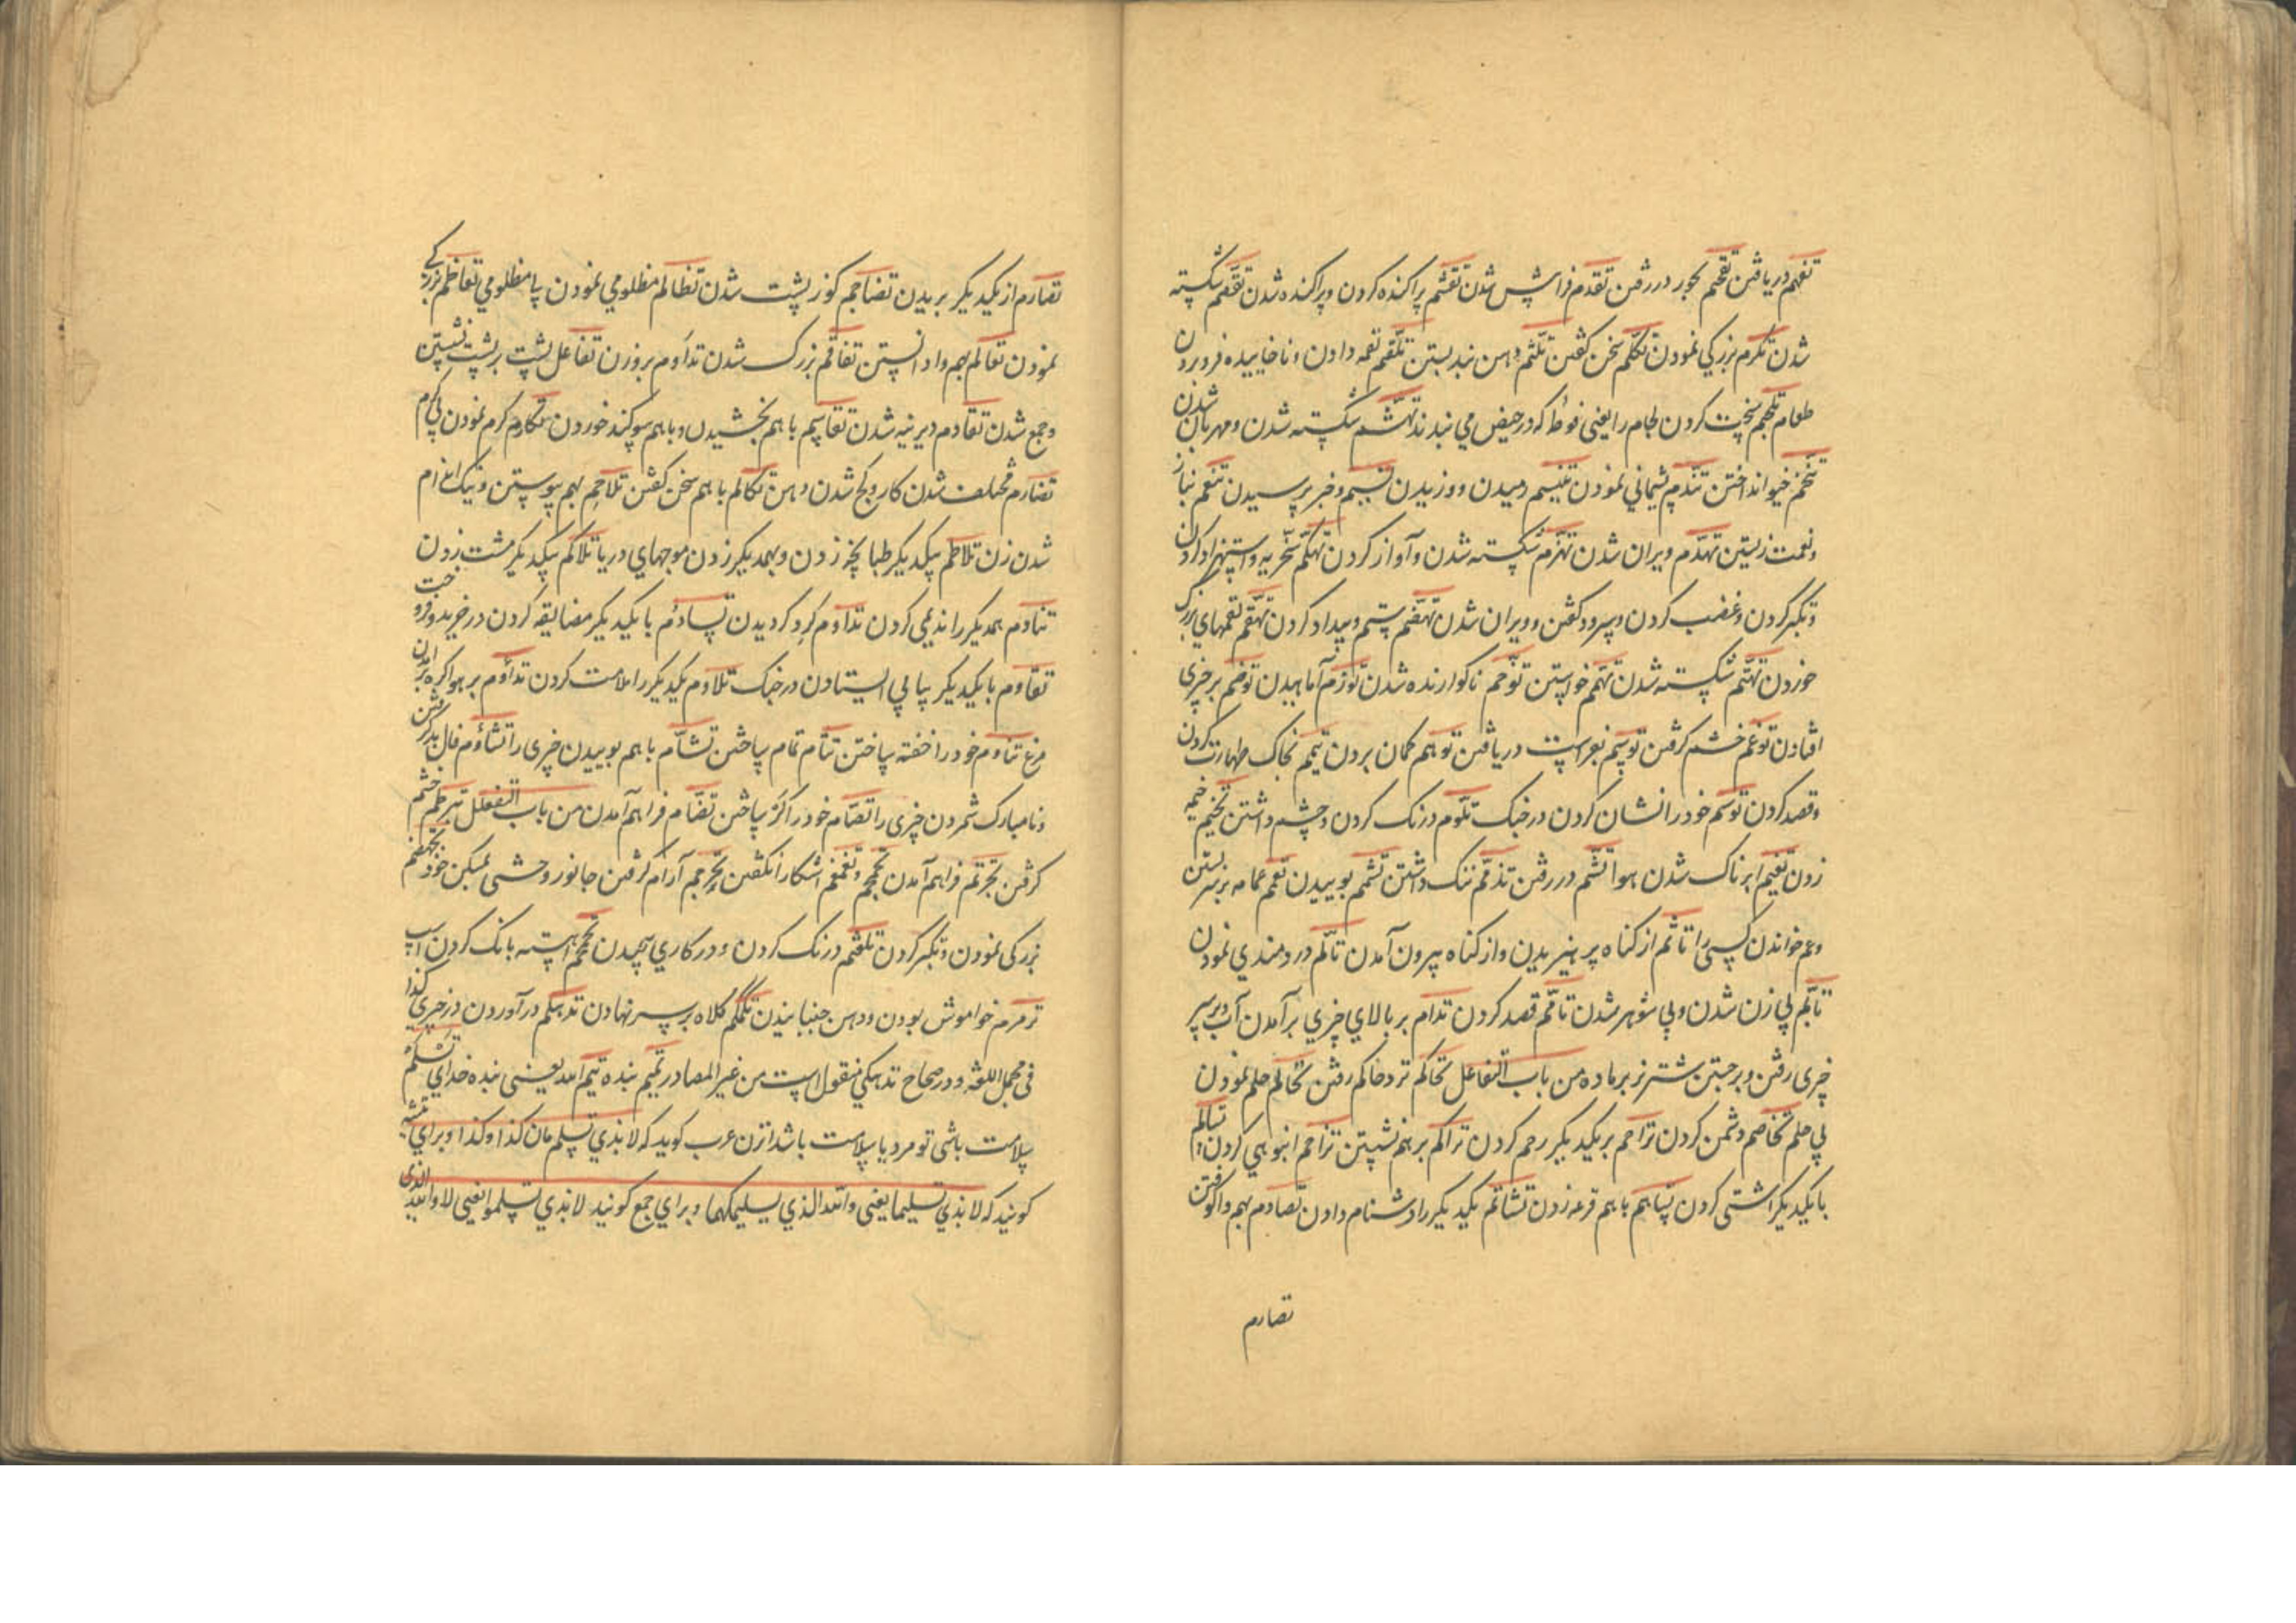 تفهم دریافتن تقحم بجور در رفتن تقدم فراپیش شدن تقثم پراکنده کردن و پراکنده شدن تقصم شکسته
شدن تکرم بزرگی نمودن تکلم سخن گفتن تلثم دهن بند بستن تلقم لقمه دادن و ناخاییده فرو بردن
طعام تلجم سخت کردن لجام را یعنی فوطه که در حیض می بندند تهشم شکسته شدن و مهربان شدن
تنخم خیو انداختن تندم پشیمانی نمودن تنسم دمیدن و وزیدن نسیم و خبر پرسیدن تنعم بناز
و نعمت زیستن تهدم ویران شدن تهزم شکسته شدن و آواز کردن تهکم سخریه و استهزا کردن
و تکبر کردن و غضب کردن و سرود گفتن و ویران شدن تهضم ستم و بیداد کردن تهقم لقمهای بزرگ
خوردن تهتم شکسته شدن تهمم خواستن توخم ناگوارنده شدن تورم آماهیدن توضم بر چیزی
افتادن توغم خشم گرفتن توسم بفراست دریافتن توهم گمان بردن تیمم بخاک طهارت کردن
و قصد کردن توسم خود را نشان کردن در جنگ تلوم درنگ کردن و چشم داشتن تخیم خیمه
زدن تغیم ابرناک شدن هوا تشم در رفتن تذمم ننگ داشتن تشمم بوییدن تعمم عمامه بر سر بستن
و عم خواندن کسی را تاثم از گناه پرهیزیدن و از گناه بیرون آمدن تالم دردمندی نمودن
تایم بی زن شدن و بی شوهر شدن تامم قصد کردن تدام بر بالای چیزی بر آمدن آب و بر سر
چیزی رفتن و بر جستن شتر نر بر ماده من باب التفاعل تحاکم نزد حاکم رفتن تحالم حلم نمودن
بی حلم تخاصم دشمنی کردن تراحم بر یکدیگر رحم کردن تراکم بر هم نشستن تزاحم انبوهی کردن تسالم
با یکدیگر آشتی کردن تساهم با هم قرعه زدن تشاتم یکدیگر را دشنام دادن تصادم بهم واکوفتن
تصارم
تصارم از یکدیگر بریدن تضاجم کوز پشت شدن تظالم مظلومی نمودن با مظلومی تعاظم بزرگی
نمودن تعالم بهم وا دانستن تفاقم بزرگ شدن تداوم بر وزن تفاعل پشت بر پشت نشستن
و جمع شدن تقادم دیرینه شدن تقاسم با هم بخشیدن و با هم سوگند خوردن تکارم کرم نمودن بی کرم
تضارم مختلف شدن کار و کج شدن دهن تکالم با هم سخن گفتن تلاحم بهم پیوستن و تنگ اندام
شدن زن تلاطم یکدیگر طبانچه زدن و بهمدیگر زدن موجهای دریا تلاکم یکدیگر مشت زدن
تنادم همدیگر را ندیمی کردن تداوم گرد گردیدن تساوم با یکدیگر مضایقه کردن در خرید و فروخت
تقاوم با یکدیگر بپای ایستادن در جنگ تلاوم یکدیگر را ملامت کردن تداوم بر هوا گره بر آمدن
مرغ تناوم خود را خفته ساختن تتام تمام ساختن تشام با هم بوییدن چیزی را تشاوم فال بد گرفتن
و نامبارک شمردن چیزی را تصام خود را کر ساختن تضام فراهم آمدن من باب التفعلل تبرطم خشم
گرفتن تجرثم فراهم آمدن تجمجم و تغمغم آشکارا نگفتن تحرجم آرام گرفتن جانور وحشی بمسکن خود تجهضم
بزرگی نمودن و تکبر کردن تلعثم درنگ کردن و در کاری پیچیدن تحمحم آهسته بانگ کردن اسپ
ترمرم خاموش بودن و دهن جنبانیدن تکمکم کلاه بر سر نهادن تدهکم در آوردن در چیزی کذا
فی مجمل اللغة و در صحاح تدهکم منقول است من غیر المصادر تمیم بنده تیم امد یعنی بنده خدای تسلم
سلامت باشی تو مرد یا سلامت باشد از زن عرب گوید که لا بذی تسلم مان کذا و کذا و برای تثنیه
گویند که لا بذی تسلیما یعنی و الله الذی یسلیمکما و برای جمع گویند لا بذی تسلموا یعنی لا و الله الذی